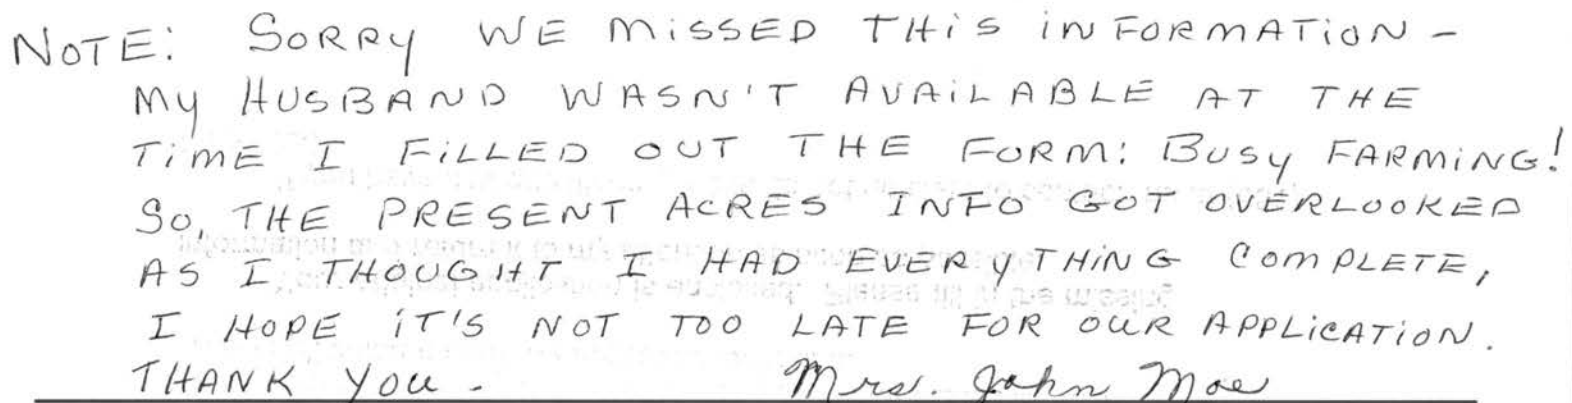 NOTE: SORRY WE MISSED THIS INFORMATION -
MY HUSBAND WASN'T AVAILABLE AT THE
TIME I FILLED OUT THE FORM: BUSY FARMING!
SO, THE PRESENT ACRES INFO GOT OVERLOOKED
AS I THOUGHT I HAD EVERYTHING COMPLETE,
I HOPE IT'S NOT TOO LATE FOR OUR APPLICATION.
THANK YOU - Mrs. John Moe